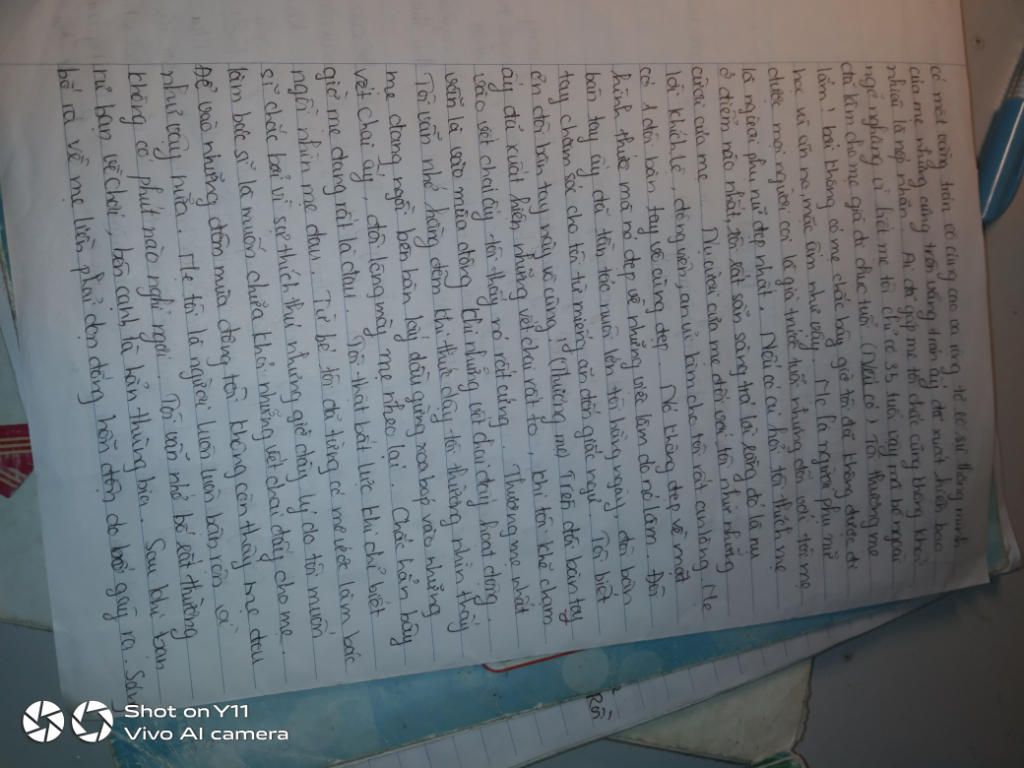 có một vầng trán vô cùng cao và rộng, thể lộ sự thông minh
của mẹ nhưng cũng trên vầng trán ấy, đã xuất hiện bao
nhiêu là nếp nhăn. Ai đã gặp mẹ tôi chắc cũng không khỏi
ngỡ ngàng vì hồi mẹ tôi chỉ có 33 tuổi vậy mà bề ngoài
đã làm cho mẹ già đi chục tuổi. Tôi thương mẹ
lắm! bởi không có mẹ chắc bây giờ tôi đã không được đi
học và ăn no, mặc ấm như vậy. Mẹ là người phụ nữ
được mọi người coi là già trước tuổi nhưng đối với tôi mẹ
là người phụ nữ đẹp nhất. Nếu có ai hỏi tôi thích mẹ
ở điểm nào nhất, tôi rất sẵn sàng trả lời rằng đó là nụ
cười của mẹ. Nụ cười của mẹ đối với tôi như những
lời khích lệ, động viên, an ủi làm cho tôi rất vui lòng. Mẹ
có 1 đôi bàn tay vô cùng đẹp. Nó không đẹp về mặt
hình thức mà nó đẹp về những việc làm do nó làm. Đôi
bàn tay ấy đã tần tảo nuôi lớn tôi hằng ngày, đôi bàn
tay chăm sóc cho tôi từ miếng ăn đến giấc ngủ. Tôi biết
ơn đôi bàn tay này vô cùng. (Thương mẹ) Trên đôi bàn tay
ấy đã xuất hiện những vết chai rất to, khi tôi khẽ chạm
vào vết chai ấy tôi thấy nó rất cứng. Thương mẹ nhất
vẫn là vào mùa đông khi những vết chai đấy hoạt động.
Tôi vẫn nhớ hằng đêm khi thức dậy tôi thường nhìn thấy
mẹ đang ngồi bên bàn lấy dầu gừng xoa bóp vào những
vết chai ấy, đôi lông mày mẹ nheo lại. Chắc hẳn bây
giờ mẹ đang rất là đau. Tôi thật bất lực khi chỉ biết
ngồi nhìn mẹ đau. Từ bé tôi đã từng có mơ ước làm bác
sĩ chắc bởi vì sở thích thế nhưng giờ đây lý do tôi muốn
làm bác sĩ là muốn chữa khỏi những vết chai đấy cho mẹ.
Để vào những đêm mưa đông tôi không còn thấy mẹ đau
như vậy nữa. Mẹ tôi là người luôn luôn bận rộn và
không có phút nào nghỉ ngơi. Tôi vẫn nhớ bố tôi thường
rủ bạn về chơi, bên cạnh là hẳn thùng bia. Sau khi bạn
bố ra về mẹ luôn phải dọn đống hỗn độn do bố gây ra. Sau
Rồi
Shot on Y11
Vivo AI camera